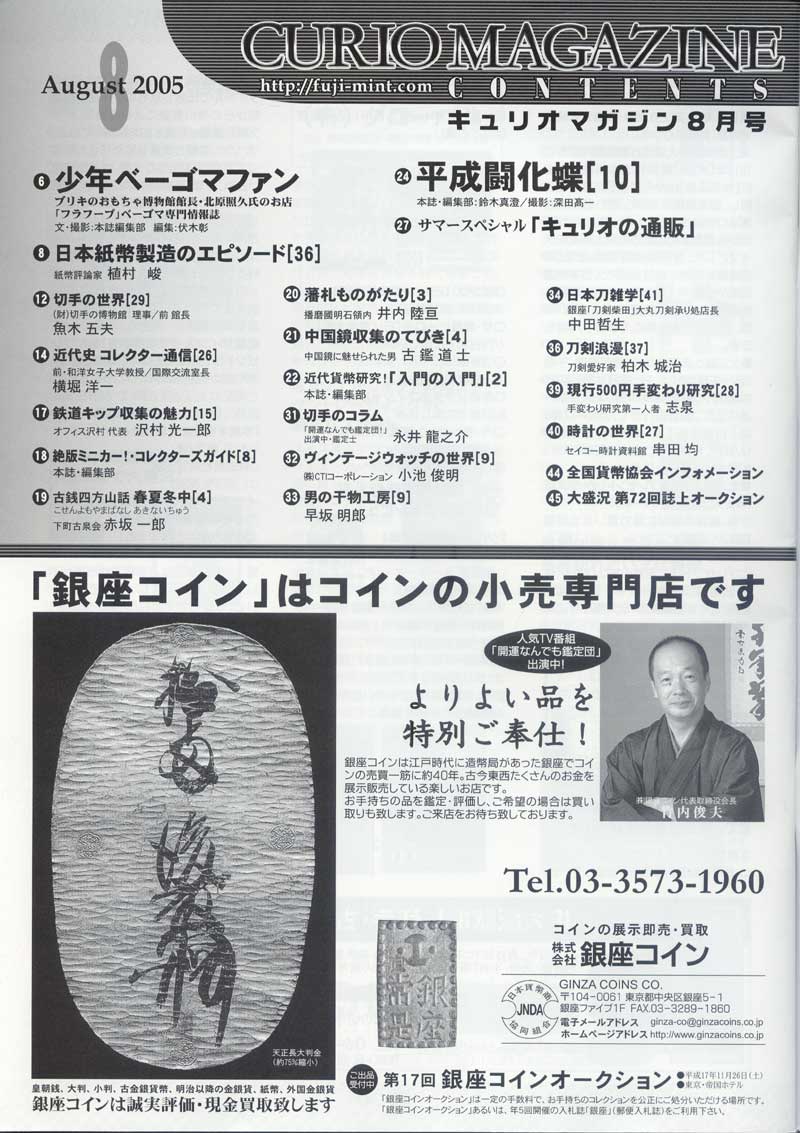 CURIO MAGAZINE
August 2005
8
http://fuji-mint.com
CONTENTS
キュリオマガジン8月号
6 少年ベーゴマファン
ブリキのおもちゃ博物館館長・北原照久氏のお店
「フラフープ」ベーゴマ専門情報誌
文・撮影:本誌編集部 編集:伏木彰
8 日本紙幣製造のエピソード[36]
紙幣評論家 植村 峻
12 切手の世界[29]
(財)切手の博物館 理事/前 館長
魚木 五夫
14 近代史 コレクター通信[26]
前・和洋女子大学教授/国際交流室長
横堀 洋一
17 鉄道キップ収集の魅力[15]
オフィス沢村 代表 沢村 光一郎
18 絶版ミニカー!・コレクターズガイド[8]
本誌・編集部
19 古銭四方山話 春夏冬中[4]
こせんよもやまばなし あきないちゅう
下町古泉会 赤坂 一郎
20 藩札ものがたり[3]
播磨國明石領内 井内 陸亘
21 中国鏡収集のてびき[4]
中国鏡に魅せられた男 古 鑑 道 士
22 近代貨幣研究!「入門の入門」[2]
本誌・編集部
31 切手のコラム
「開運なんでも鑑定団!」
出演中・鑑定士 永井 龍之介
32 ヴィンテージウォッチの世界[9]
㈱CTIコーポレーション 小池 俊明
33 男の干物工房[9]
早坂 明郎
24 平成闘化蝶[10]
本誌・編集部:鈴木真澄/撮影:深田髙一
27 サマースペシャル「キュリオの通販」
34 日本刀雑学[41]
銀座「刀剣柴田」大丸刀剣承り処店長
中田哲生
36 刀剣浪漫[37]
刀剣愛好家 柏木 城治
39 現行500円手変わり研究[28]
手変わり研究第一人者 志泉
40 時計の世界[27]
セイコー時計資料館 串田 均
44 全国貨幣協会インフォメーション
45 大盛況 第72回誌上オークション
「銀座コイン」はコインの小売専門店です
人気TV番組
「開運なんでも鑑定団」
出演中!
よりよい品を
特別ご奉仕!
銀座コインは江戸時代に造幣局があった銀座でコイ
ンの売買一筋に約40年。古今東西たくさんのお金を
展示販売している楽しいお店です。
お手持ちの品を鑑定・評価し、ご希望の場合は買い
取りも致します。ご来店をお待ち致しております。
㈱銀座コイン代表取締役会長
竹内俊夫
Tel.03-3573-1960
コインの展示即売・買取
株式会社 銀座コイン
日本貨幣商
JNDA
協同組合
GINZA COINS CO.
〒104-0061 東京都中央区銀座5-1
銀座ファイブ1F FAX.03-3289-1860
電子メールアドレス ginza-co@ginzacoins.co.jp
ホームページアドレス http://www.ginzacoins.co.jp
銀座
常是
天正長大判金
(約75%縮小)
皇朝銭、大判、小判、古金銀貨幣、明治以降の金銀貨、紙幣、外国金銀貨
銀座コインは誠実評価・現金買取致します
ご出品
受付中
第17回 銀座コインオークション
●平成17年11月26日(土)
●東京・帝国ホテル
「銀座コインオークション」は一定の手数料で、お手持ちのコレクションを公正にご処分いただける場所です。
「銀座コインオークション」あるいは、年5回開催の入札誌「銀座」(郵便入札誌)をご利用下さい。